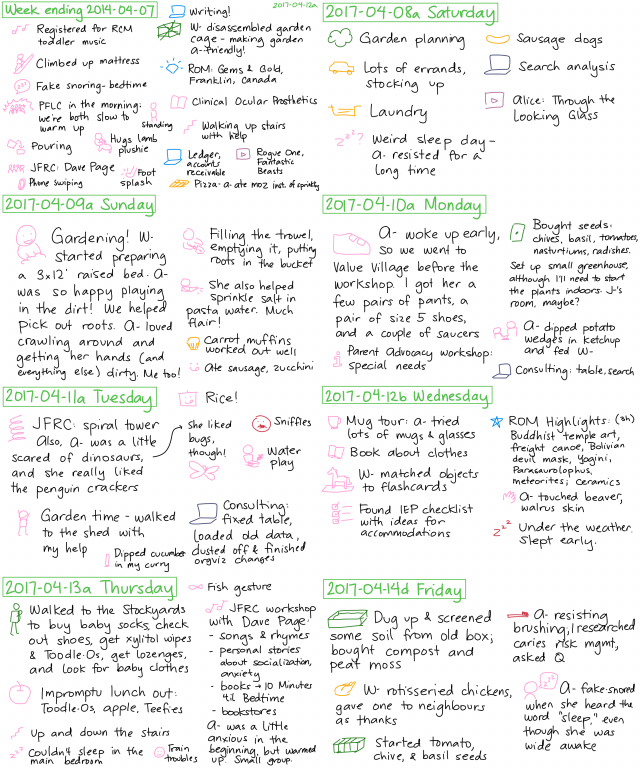 Week ending 2014-04-07
Registered for RCM
toddler music
Climbed up mattress
Fake snoring- bedtime
PFLC in the morning:
we're both slow to
warm up
Standing
Pouring
Hugs lamb
plushie
JFRC: Dave Page
Phone swiping
Foot
splash
2017-04-12a
Writing!
W- disassembled garden
cage - making garden
a-friendly!
ROM: Gems & Gold,
Franklin, Canada
Clinical Ocular Prosthetics
Walking up stairs
with help
Ledger,
accounts
receivable
Rogue One,
Fantastic
Beasts
Pizza- a- ate moz inst. of sprinkly
2017-04-08a Saturday
Garden planning
Lots of errands,
stocking up
Laundry
Weird sleep day-
a- resisted for a
long time
Sausage dogs
Search analysis
Alice: Through the
Looking Glass
2017-04-09a Sunday
Gardening! W-
started preparing
a 3x12' raised bed. A-
was so happy playing
in the dirt! We helped
pick out roots. A- loved
crawling around and
getting her hands (and
everything else) dirty. Me too!
Filling the trowel,
emptying it, putting
roots in the bucket
She also helped
sprinkle salt in
pasta water. Much
flair!
Carrot muffins
worked out well
Ate sausage, zucchini
2017-04-10a Monday
A- woke up early,
so we went to
Value Village before the
workshop. I got her a
few pairs of pants, a
pair of size 5 shoes,
and a couple of saucers
Parent Advocacy workshop:
special needs
Bought seeds:
chives, basil, tomatoes,
nasturtiums, radishes.
Set up small greenhouse,
although I'll need to start
the plants indoors. J-'s
room, maybe?
A- dipped potato
wedges in ketchup
and fed W-
Consulting: table, search
2017-04-11a Tuesday
JFRC: spiral tower
Also, a- was a little
scared of dinosaurs,
and she really liked
the penguin crackers
Garden time - walked
to the shed with
my help
Dipped cucumber
in my curry
Rice!
She liked
bugs,
though!
Sniffles
Water
play
Consulting:
fixed table,
loaded old data,
dusted off & finished
orgviz changes
2017-04-12b Wednesday
Mug tour: a- tried
lots of mugs & glasses
Book about clothes
W- matched objects
to flashcards
Found IEP checklist
with ideas for
accommodations
ROM Highlights: (3h)
Buddhist temple art,
freight canoe, Bolivian
devil mask, Yogini,
Parasaurolophus,
meteorites, ceramics
A- touched beaver,
walrus skin
Under the weather.
Slept early.
2017-04-13a Thursday
Walked to the Stockyards
to buy baby socks, check
out shoes, get xylitol wipes
& Toodle-Os, get lozenges,
and look for baby clothes
Impromptu lunch out:
Toodle-Os, apple, Teefies
Up and down the stairs
Couldn't sleep in the
main bedroom
Train
troubles
Fish gesture
JFRC workshop
with Dave Page!
- songs & rhymes
- personal stories
about socialization,
anxiety
- books → 10 Minutes
'til Bedtime
- bookstores
A- was a little
anxious in the
beginning, but warmed
up. Small group.
2017-04-14d Friday
Dug up & screened
some soil from old box;
bought compost and
peat moss
W- rotisseried chickens,
gave one to neighbours
as thanks
Started tomato,
chive, & basil seeds
A- resisting
brushing, I researched
caries risk mgmt,
asked Q
A- fake-snored
when she heard the
word "sleep," even
though she was
wide awake